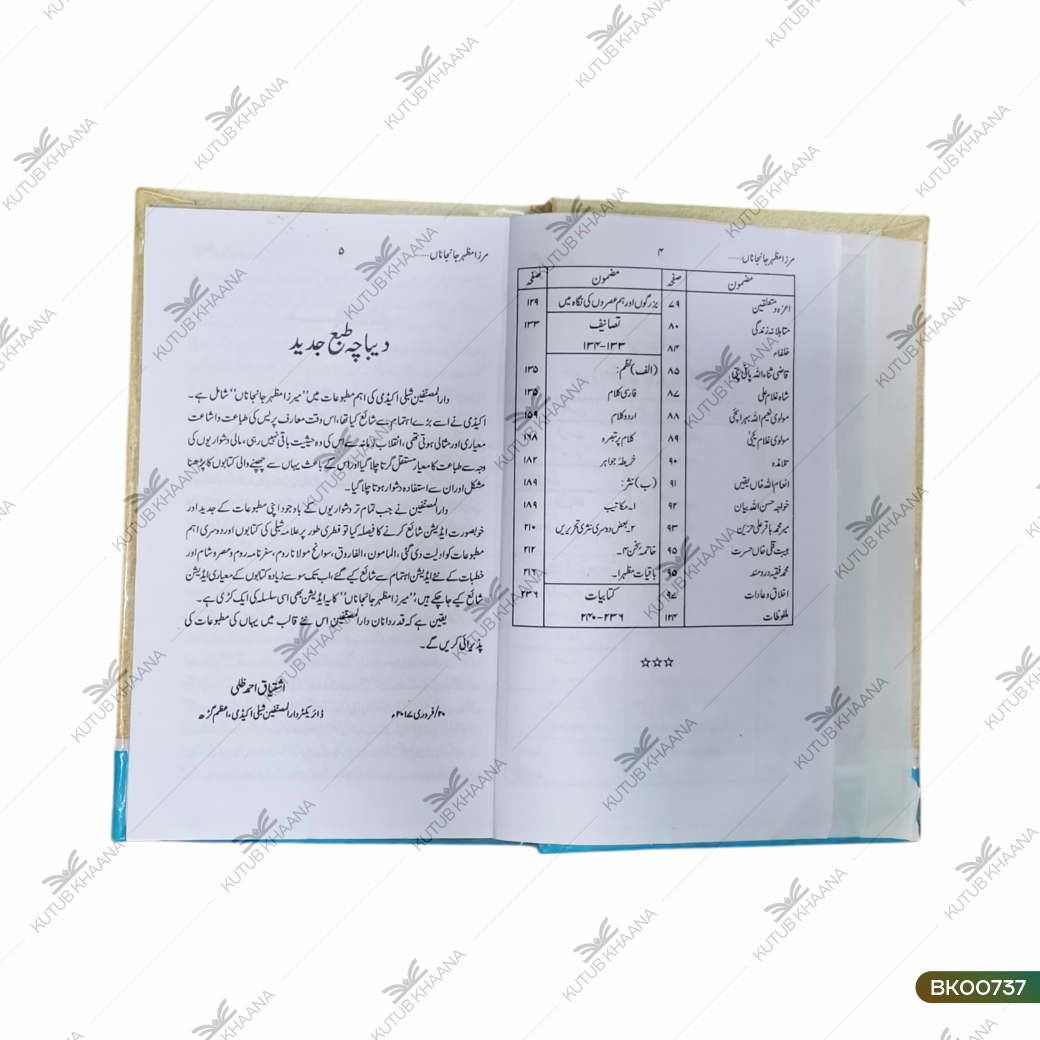 مرزا مظہر جانجاناں......
۴
مضمون
صفحہ
مضمون
صفحہ
اعزہ و متعلقین
۷۹
متاہلانہ زندگی
۸۰
خلفاء
۸۴
قاضی ثناء اللہ پانی پتی
۸۵
شاہ غلام علی
۸۷
مولوی نعیم اللہ بہرائچی
۸۸
مولوی غلام یحییٰ
۸۹
تلامذہ
۹۰
انعام اللہ خاں یقیں
۹۱
خواجہ حسن اللہ بیان
۹۲
میر محمد باقر علی حزیں
۹۳
ہیبت قلی خاں حسرت
۹۵
محمد فقیہ دردمند
۹۵
اخلاق و عادات
۹۷
ملفوظات
۱۲۴
بزرگوں اور ہم عصروں کی نگاہ میں
۱۲۹
تصانیف
۱۳۳
۱۳۳-۱۳۴
(الف) نظم:
۱۳۵
فارسی کلام
۱۳۵
اردو کلام
۱۵۹
کلام پر تبصرہ
۱۶۸
خریطۂ جواہر
۱۸۲
(ب) نثر:
۱۸۹
۱- مکاتیب
۱۸۹
۲- بعض دوسری نثری تحریریں
۲۱۰
۲۱۲
باقیات مظہر
۲۱۶
کتابیات
۲۳۶
۲۳۶-۲۴۰
☆☆☆
مرزا مظہر جانجاناں......
۵
دیباچہ طبع جدید
دارالمصنفین شبلی اکیڈمی کی اہم مطبوعات میں ’’میرزا مظہر جانجاناں‘‘ شامل ہے۔
اکیڈمی نے اسے بڑے اہتمام سے شائع کیا تھا، اس وقت معارف پریس کی طباعت و اشاعت
معیاری اور مثالی ہوتی تھی، انقلاب زمانہ سے اس کی وہ حیثیت باقی نہیں رہی، مالی دشواریوں کی
وجہ سے طباعت کا معیار مستقل گرتا چلا گیا اور اس کے باعث یہاں سے چھپنے والی کتابوں کا پڑھنا
مشکل اور ان سے استفادہ دشوار ہوتا چلا گیا۔
دارالمصنفین نے جب تمام تر دشواریوں کے باوجود اپنی مطبوعات کے جدید اور
خوبصورت ایڈیشن شائع کرنے کا فیصلہ کیا تو فطری طور پر علامہ شبلی کی کتابوں اور دوسری اہم
مطبوعات کو اولیت دی گئی، المامون، الفاروق، سوانح مولانا روم، سفرنامہ روم و مصر و شام اور
خطبات کے نئے ایڈیشن اہتمام سے شائع کیے گئے، اب تک سو سے زیادہ کتابوں کے معیاری ایڈیشن
شائع کیے جا چکے ہیں، ’’میرزا مظہر جانجاناں‘‘ کا یہ ایڈیشن بھی اسی سلسلہ کی ایک کڑی ہے۔
یقین ہے کہ قدردانان دارالمصنفین اس نئے قالب میں یہاں کی مطبوعات کی
پذیرائی کریں گے۔
اشتیاق احمد ظلی
۲۰/فروری ۲۰۱۷ء
ڈائریکٹر دارالمصنفین شبلی اکیڈمی، اعظم گڑھ
KUTUB KHAANA
BK00737